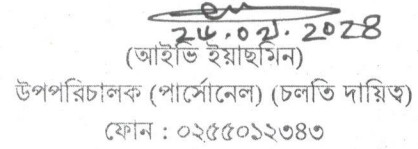 ২৪.০৮.২০২৪
(আইভি ইয়াছমিন)
উপপরিচালক (পার্সোনেল) (চলতি দায়িত্ব)
ফোন : ০২৫৫০১২৩৪৩